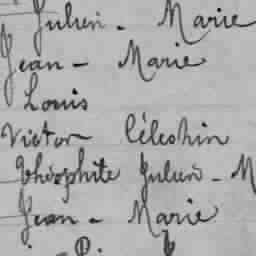 Julien - Marie
Jean - Marie
Louis
Victor Célestin
Théophile Julien - M
Jean - Marie